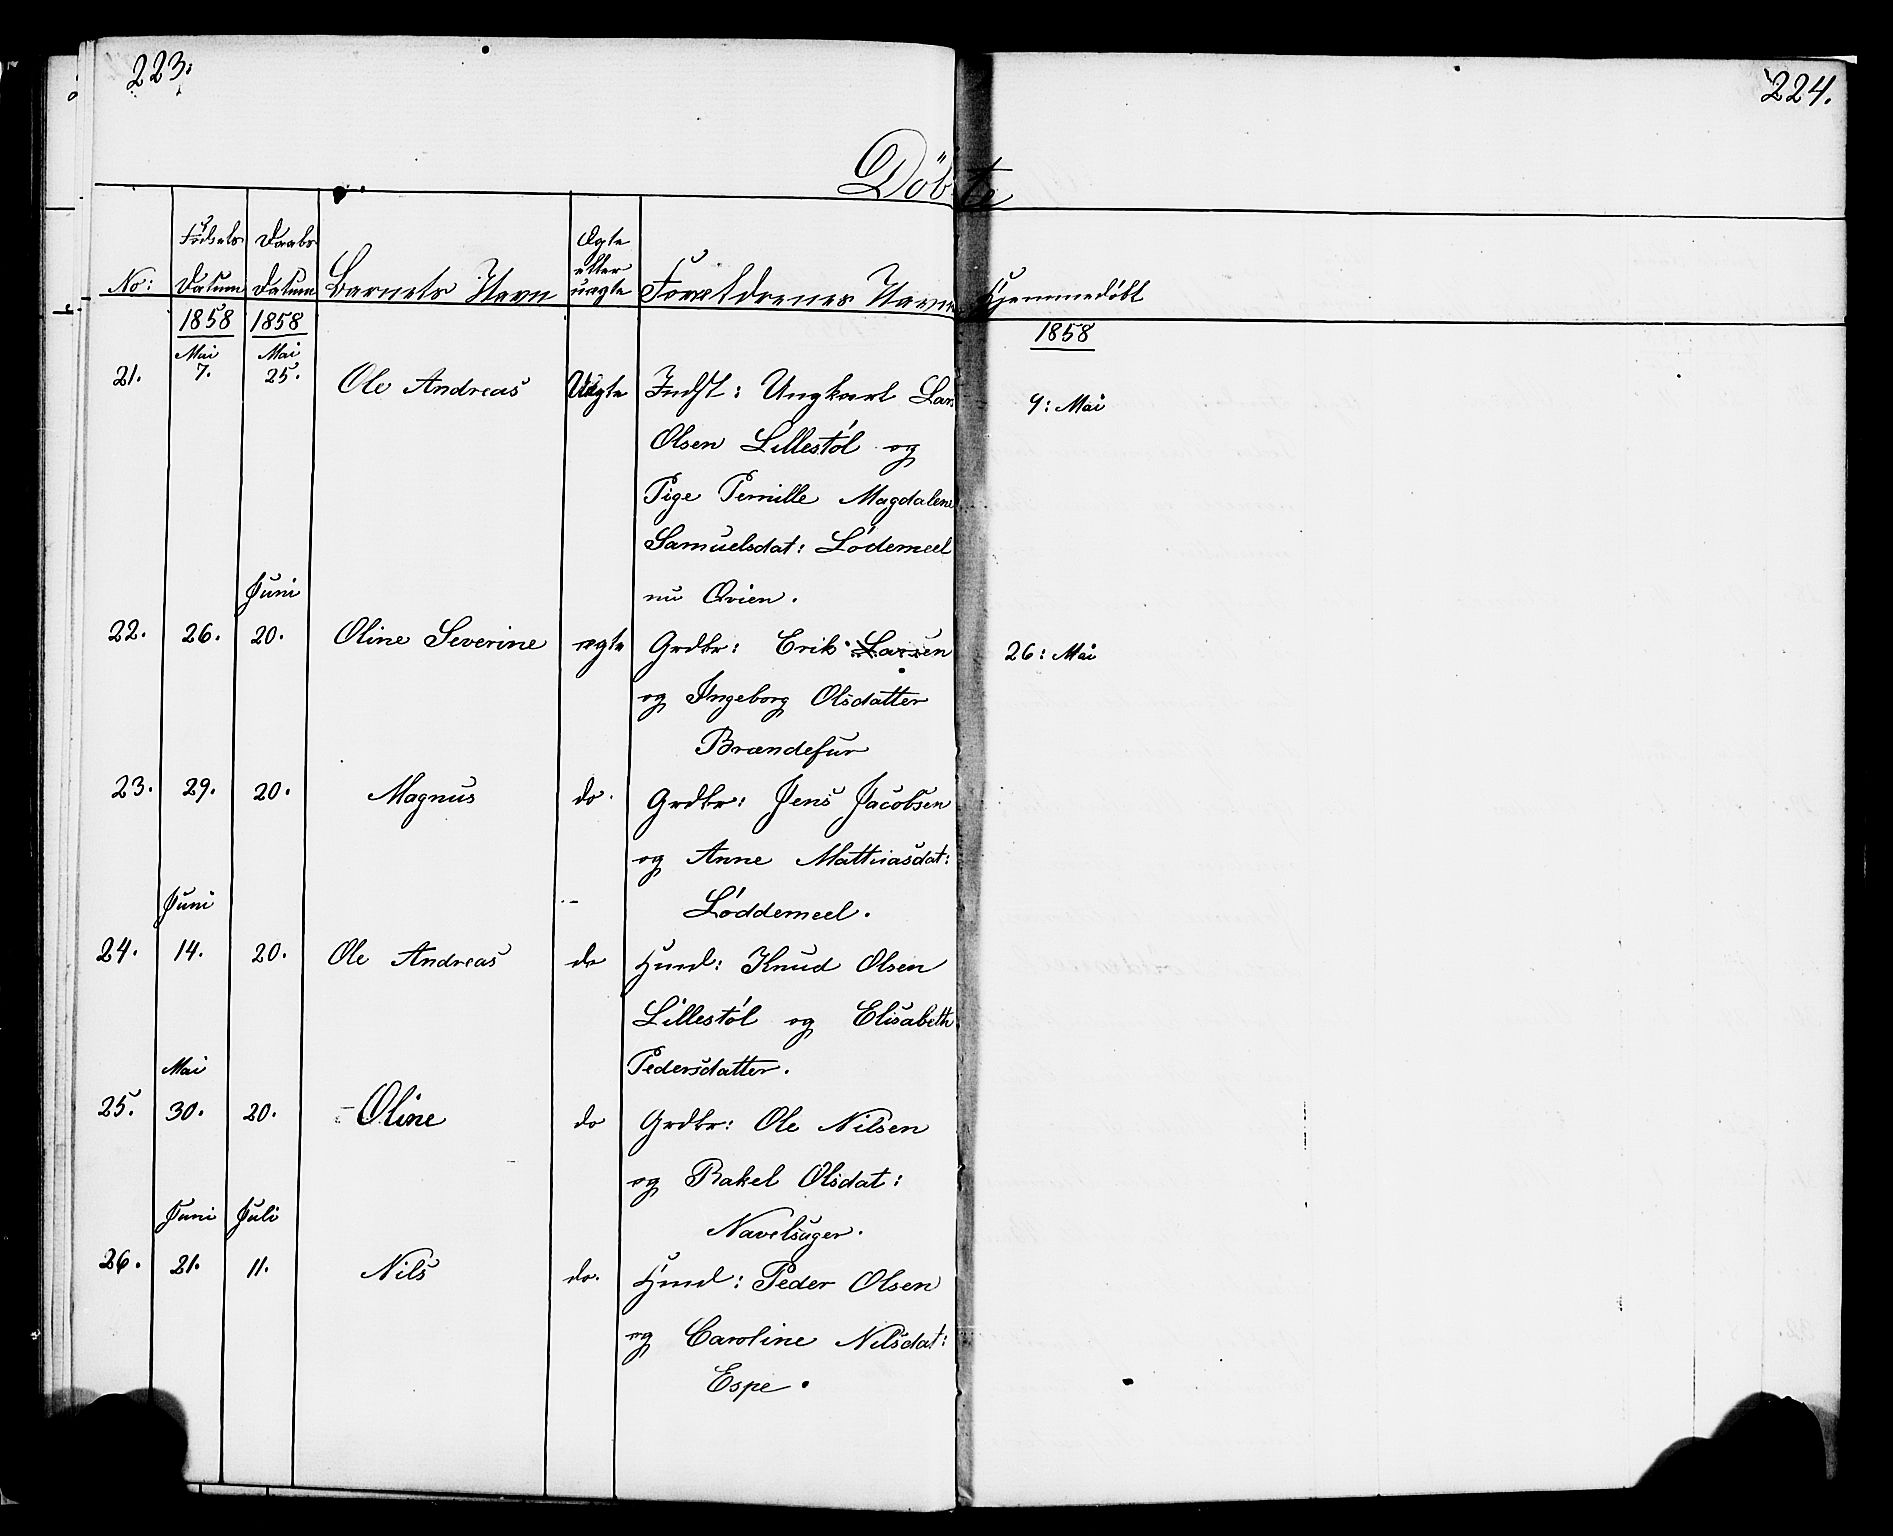 223.
224.
Döbte
No: Fødsels Datum Daabs Datum Barnets Navn Ægte eller uægte Forældrenes Navne Hjemmedöbt
1858 1858 1858
Mai Mai
21. 7. 25. Ole Andreas Uægte Indst: Ungkarl Lars 9: Mai
Olsen Lillestöl og
Pige Pernille Magdalene
Samuelsdat: Lödemeel
Juni
nu Qvien.
22. 26. 20. Oline Severine ægte Grdbr: Erik Larsen 26: Mai
og Ingeborg Olsdatter
Brændefur
23. 29. 20. Magnus do. Grdbr: Jens Jacobsen
og Anne Mathiasdat:
Juni
Løddemeel.
24. 14. 20. Ole Andreas do Huusm: Knud Olsen
Lillestöl og Elisabeth
Mai
Pedersdatter.
25. 30. 20. Oline do Grdbr: Ole Nilsen
og Rakel Olsdat:
Juni Juli
Navelsager.
26. 21. 11. Nils do. Huusm: Peder Olsen
og Caroline Nilsdat:
Espe.